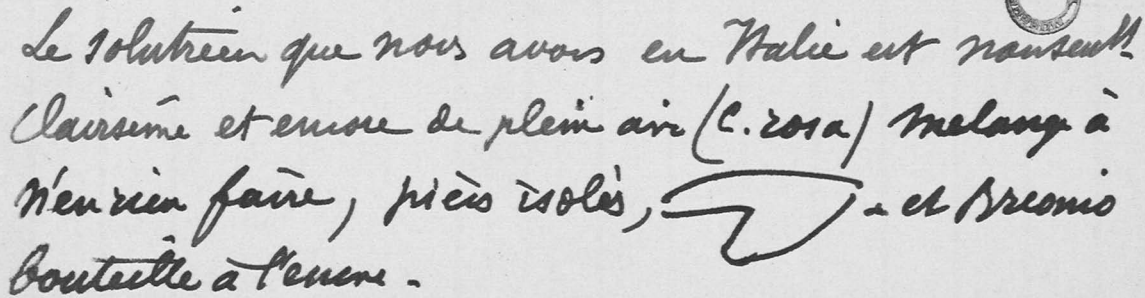 Le solutréen que nous avons en Italie est nonseult
Clairsêmé et encore de plein air (C. rosa) melangé à
n'en rien faire, pièces isolés, et Breonio
bouteille à l'encre.